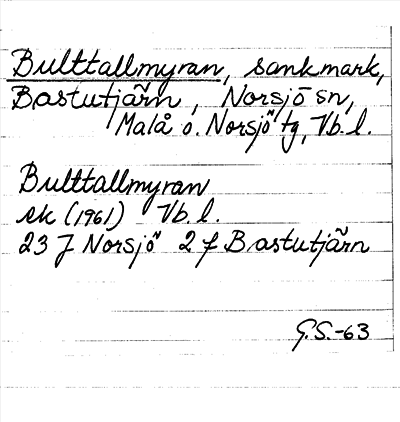 Bulttallmyran, sankmark,
Bastutjärn, Norsjö sn,
Malå o. Norsjö tg, Vb. l.
Bulttallmyran
ek (1961) Vb. l.
23 J Norsjö 2 f Bastutjärn
G.S.-63